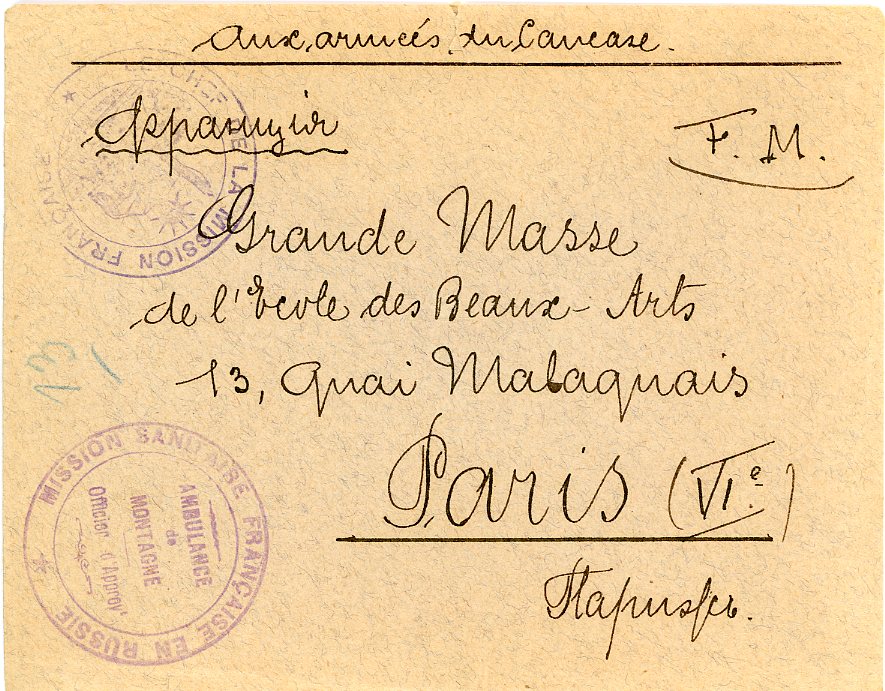 Aux armées du Caucase.
Франция
F. M.
Grande Masse
de l'Ecole des Beaux-Arts
13, Quai Malaquais
Paris (VIe.)
Парижъ.
13
CHEF DE LA MISSION FRANÇAISE
MISSION SANITAIRE FRANÇAISE EN RUSSIE
AMBULANCE
de
MONTAGNE
Officier d'Approv